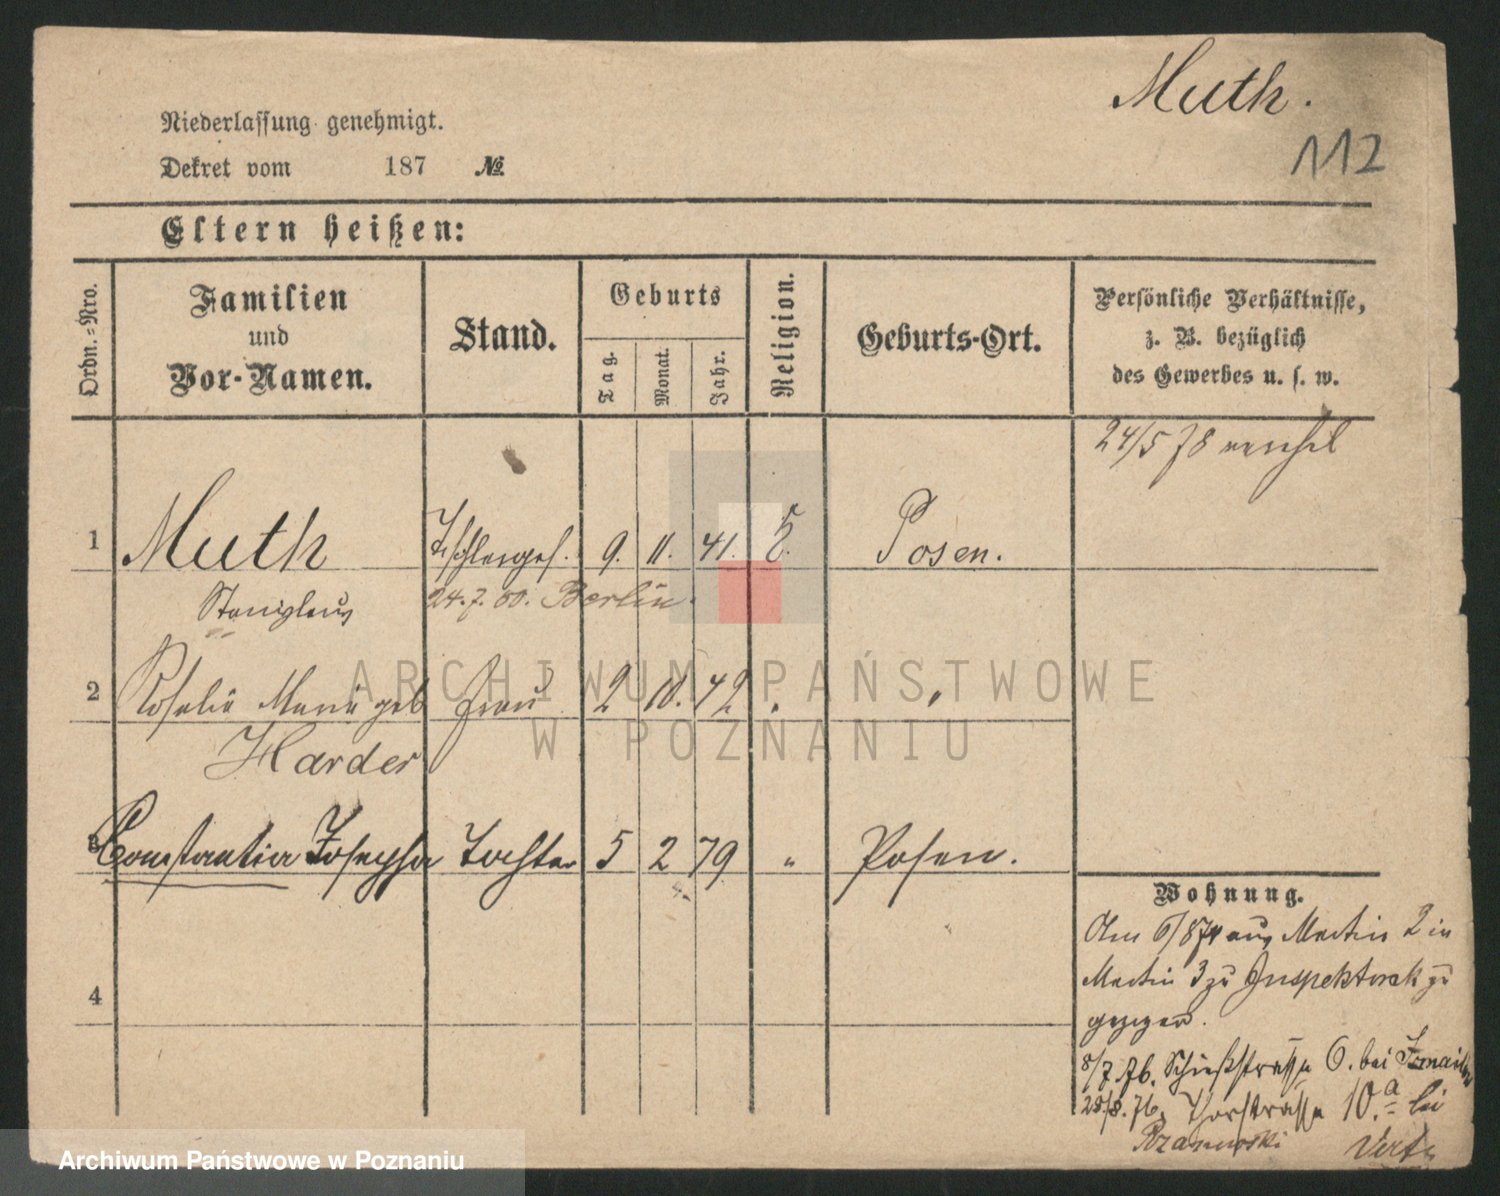 Muth.
112
Niederlassung genehmigt.
Dekret vom 187 №
Eltern heißen:
Ordn.-Nro.
Familien
und
Vor-Namen.
Stand.
Geburts
Tag.
Monat.
Jahr.
Religion.
Geburts-Ort.
Persönliche Verhältnisse,
z. B. bezüglich
des Gewerbes u. s. w.
24/5 78
1 Muth Tischlerges. 9. 11. 41. Posen.
Stanislaus 24.7. 60. Berlin.
2 Rosalie Marie geb Frau 2 10. 42 "
Harder
3 Constantia Josepha Tochter 5 2 79 " Posen.
Wohnung.
Am 6/8 74 aus Martin 2 in
Martin 3 zu Inspektorat zu
gezogen.
8/7.76. Schießstrasse 6. bei
28/8.76. Thorstrasse 10.a bei
4
ARCHIWUM PAŃSTWOWE
W POZNANIU
Archiwum Państwowe w Poznaniu